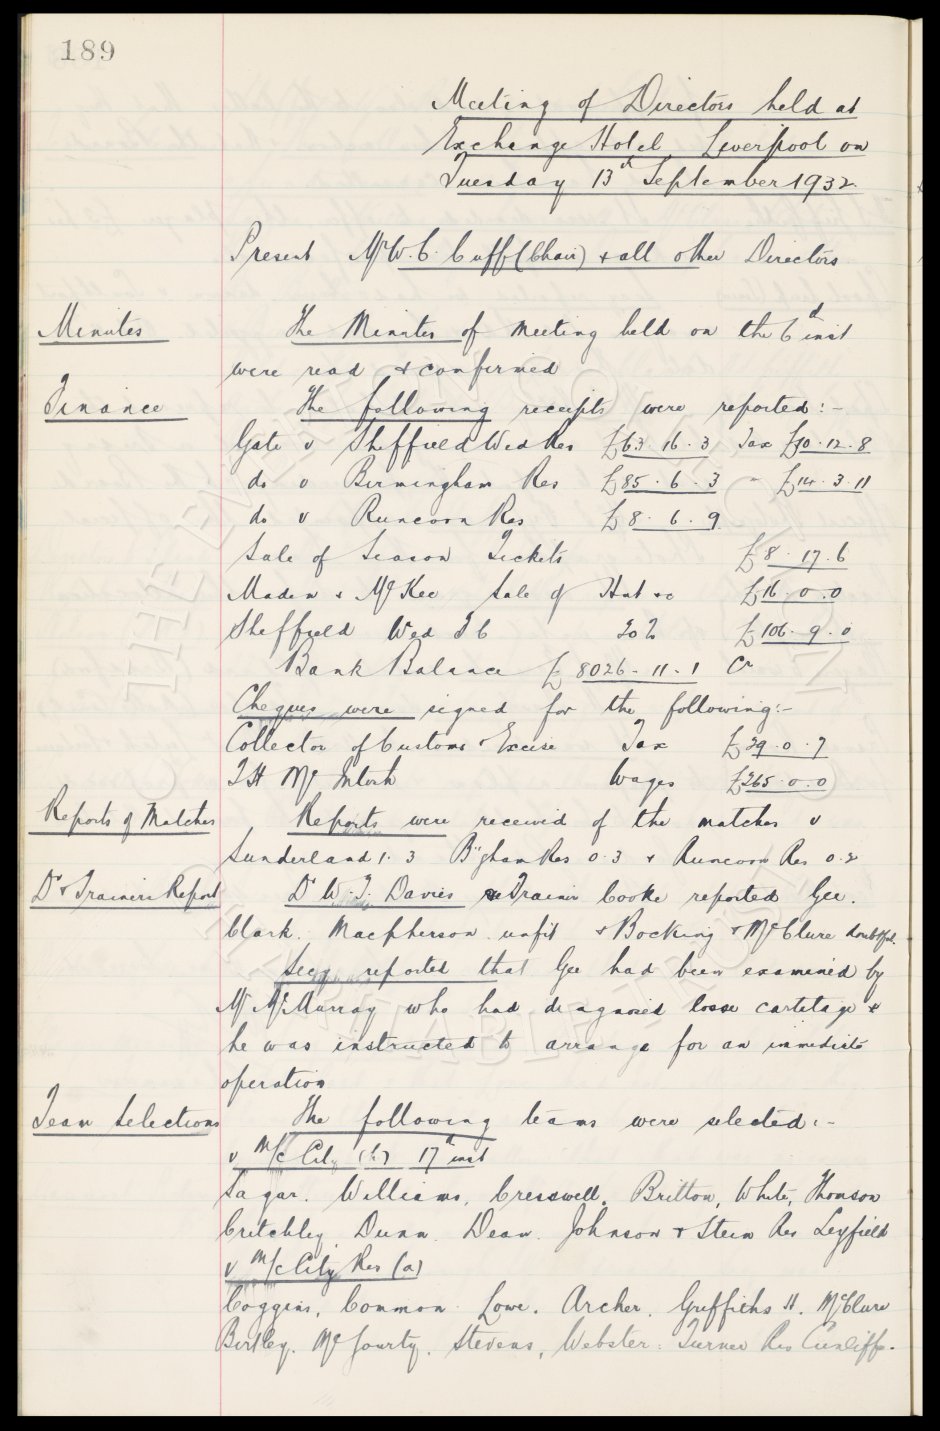 189
Meeting of Directors held at
Exchange Hotel, Liverpool on
Tuesday 13th September 1932.
Present Mr W. C. Cuff (Chair) & all other Directors
Minutes The Minutes of meeting held on the 6th inst
were read & confirmed
Finance The following receipts were reported:-
Gate v Sheffield Wed Res £63. 16. 3 Tax £10. 12. 8
do v Birmingham Res £85. 6. 3 - £14. 3. 11
do v Runcorn Res £8. 6. 9.
Sale of Season Tickets £8. 17. 6
Maden & McKee Sale of Hut &c £16. 0. 0
Sheffield Wed F C 20% £106. 9. 0
Bank Balance £8026. 11. 1 Cr
Cheques were signed for the following:-
Collector of Customs & Excise Tax £29. 0. 7
T H McIntosh Wages £265. 0. 0
Reports of Matches Reports were received of the matches v
Sunderland 1. 3 B'gham Res 0. 3 & Runcorn Res 0. 2
Dr & Trainers Report Dr W. T. Davies & Trainer Cooke reported Gee.
Clark. Macpherson. unfit & Bocking & McClure doubtful.
Secy reported that Gee had been examined by
Mr McMurray who had diagnosed loose cartilage &
he was instructed to arrange for an immediate
operation
Team Selections The following teams were selected:-
v M/c City (h) 17th inst
Sagar. Williams, Cresswell. Britton, White, Thomson
Critchley. Dunn. Dean. Johnson & Stein Res Leyfield
v M/c City Res (a)
Coggins, Common. Lowe. Archer. Griffiths H. McClure
Birtley. McGourty. Stevens, Webster. Turner Res Cunliffe.